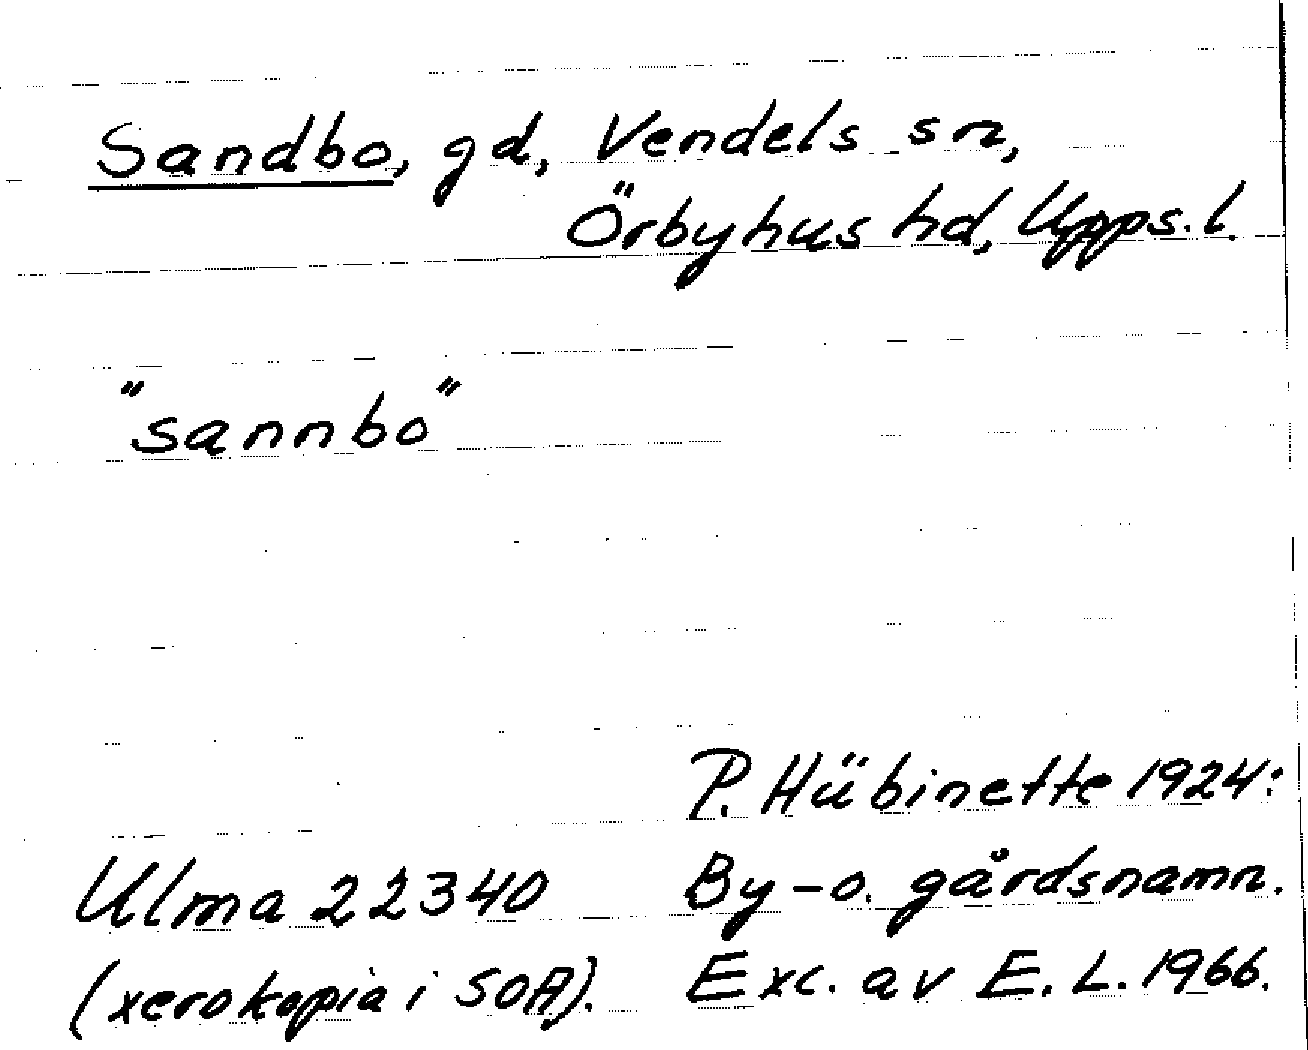 Sandbo, gd, Vendels sn,
Örbyhus hd, Upps. l.
"sannbo"
P. Hübinette 1924:
Ulma 22340 By- o. gårdsnamn.
(xerokopia i SOA). Exc. av E. L. 1966.